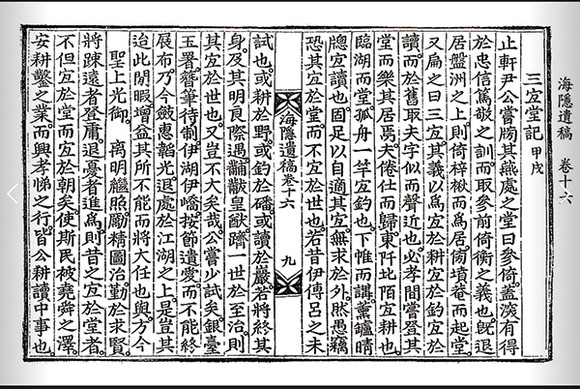 海隱遺稿 卷十六
三宜堂記 甲戌
止軒尹公嘗牓其燕處之堂曰參倚蓋湥有得
於忠信篤敬之訓而取參前倚衡之義也旣退
居盤洲之上則倚梓楸而爲居倚墳菴而起堂
又扁之曰三宜其義以爲宜於耕宜於釣宜於
讀而於舊取夫字似而聲近也必孝閒嘗登其
堂而樂其居焉夫倦仕而歸東阡北陌宜耕也
臨湖而堂孤舟一竿宜釣也下帷而講薰爐晴
牕宜讀也固足以自適其宜無求於外然愚竊
恐其宜於堂而不宜於世也若昔伊傅呂之未
海隱遺稿卷十六 九
試也或耕於野或釣於磻或讀於巖若將終其
身及其明良際遇黼黻皇猷躋一世於至治則
其宜於世也又豈不大矣哉公嘗少試矣銀臺
玉署簪筆待制伊湖伊嶠按節遺愛而不能終
展布乃今斂惠韜光退處於江湖之上是豈其
迨此閒暇增益其所不能而將大任也歟方今
聖上光御 离明繼照勵精圖治勤於求賢
將疎遠者登庸退憂者進爲則昔之宜於堂者
不但宜於堂而宜於朝矣使斯民被堯舜之澤
安耕鑿之業而興孝悌之行皆公耕讀中事也